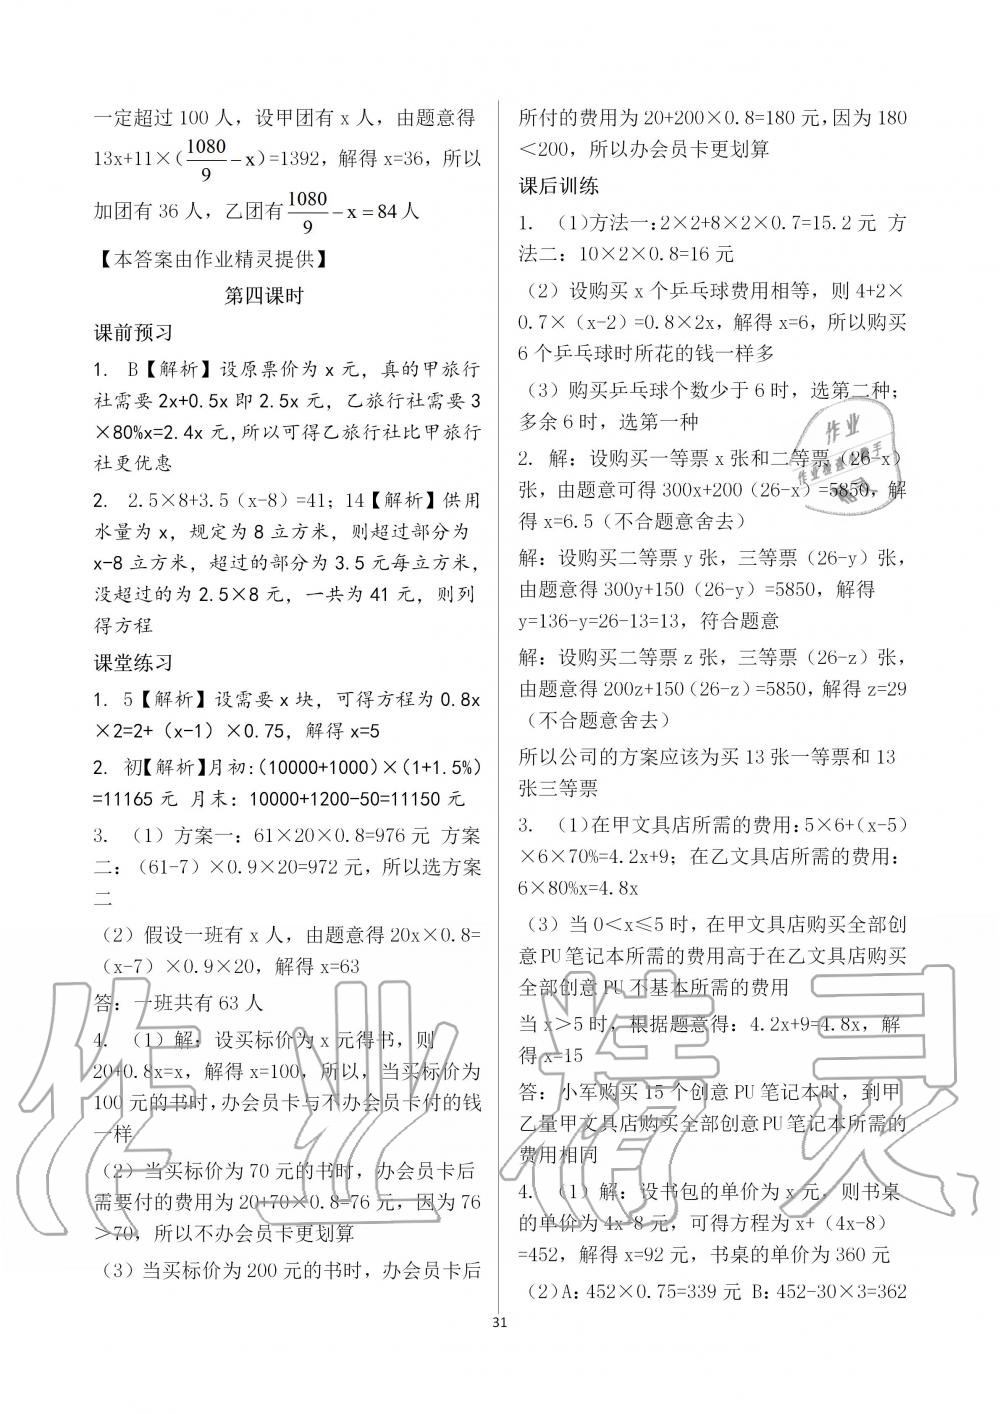 一定超过 100 人，设甲团有 x 人，由题意得
13x+11×（1080/9－x）=1392，解得 x=36，所以
加团有 36 人，乙团有1080/9－x＝84人
【本答案由作业精灵提供】
第四课时
课前预习
1. B【解析】设原票价为 x 元，真的甲旅行
社需要 2x+0.5x 即 2.5x 元，乙旅行社需要 3
×80%x=2.4x 元,所以可得乙旅行社比甲旅行
社更优惠
2. 2.5×8+3.5（x-8）=41；14【解析】供用
水量为 x，规定为 8 立方米，则超过部分为
x-8 立方米，超过的部分为 3.5 元每立方米，
没超过的为 2.5×8 元，一共为 41 元，则列
得方程
课堂练习
1. 5【解析】设需要 x 块，可得方程为 0.8x
×2=2+（x-1）×0.75，解得 x=5
2. 初【解析】月初:（10000+1000）×（1+1.5%）
=11165 元 月末：10000+1200-50=11150 元
3. （1）方案一：61×20×0.8=976 元 方案
二：（61-7）×0.9×20=972 元，所以选方案
二
（2）假设一班有 x 人，由题意得 20x×0.8=
（x-7）×0.9×20，解得 x=63
答：一班共有 63 人
4. （1）解：设买标价为 x 元得书，则
20+0.8x=x，解得 x=100，所以，当买标价为
100 元的书时,办会员卡与不办会员卡付的钱
一样
（2）当买标价为 70 元的书时，办会员卡后
需要付的费用为 20+70×0.8=76 元，因为 76
>70，所以不办会员卡更划算
（3）当买标价为 200 元的书时，办会员卡后
所付的费用为 20+200×0.8=180 元,因为 180
＜200，所以办会员卡更划算
课后训练
1. （1）方法一：2×2+8×2×0.7=15.2 元 方
法二：10×2×0.8=16 元
（2）设购买 x 个乒乓球费用相等，则 4+2×
0.7×（x-2）=0.8×2x，解得 x=6，所以购买
6 个乒乓球时所花的钱一样多
（3）购买乒乓球个数少于 6 时，选第二种；
多余 6 时，选第一种
2. 解：设购买一等票 x 张和二等票（26-x）
张，由题意可得 300x+200（26-x）=5850，解
得 x=6.5（不合题意舍去）
解：设购买二等票 y 张，三等票（26-y）张，
由题意得 300y+150（26-y）=5850，解得
y=136-y=26-13=13，符合题意
解：设购买二等票 z 张，三等票（26-z）张，
由题意得 200z+150（26-z）=5850，解得 z=29
（不合题意舍去）
所以公司的方案应该为买 13 张一等票和 13
张三等票
3. （1）在甲文具店所需的费用：5×6+（x-5）
×6×70%=4.2x+9；在乙文具店所需的费用：
6×80%x=4.8x
（3）当 0＜x≤5 时，在甲文具店购买全部创
意 PU 笔记本所需的费用高于在乙文具店购买
全部创意 PU 不基本所需的费用
当 x＞5 时，根据题意得：4.2x+9=4.8x，解
得 x=15
答：小军购买 15 个创意 PU 笔记本时，到甲
乙量甲文具店购买全部创意 PU 笔记本所需的
费用相同
4. （1）解：设书包的单价为 x 元，则书桌
的单价为 4x-8 元，可得方程为 x+（4x-8）
=452，解得 x=92 元，书桌的单价为 360 元
（2）A：452×0.75=339 元 B：452-30×3=362
31
作业精灵
作业